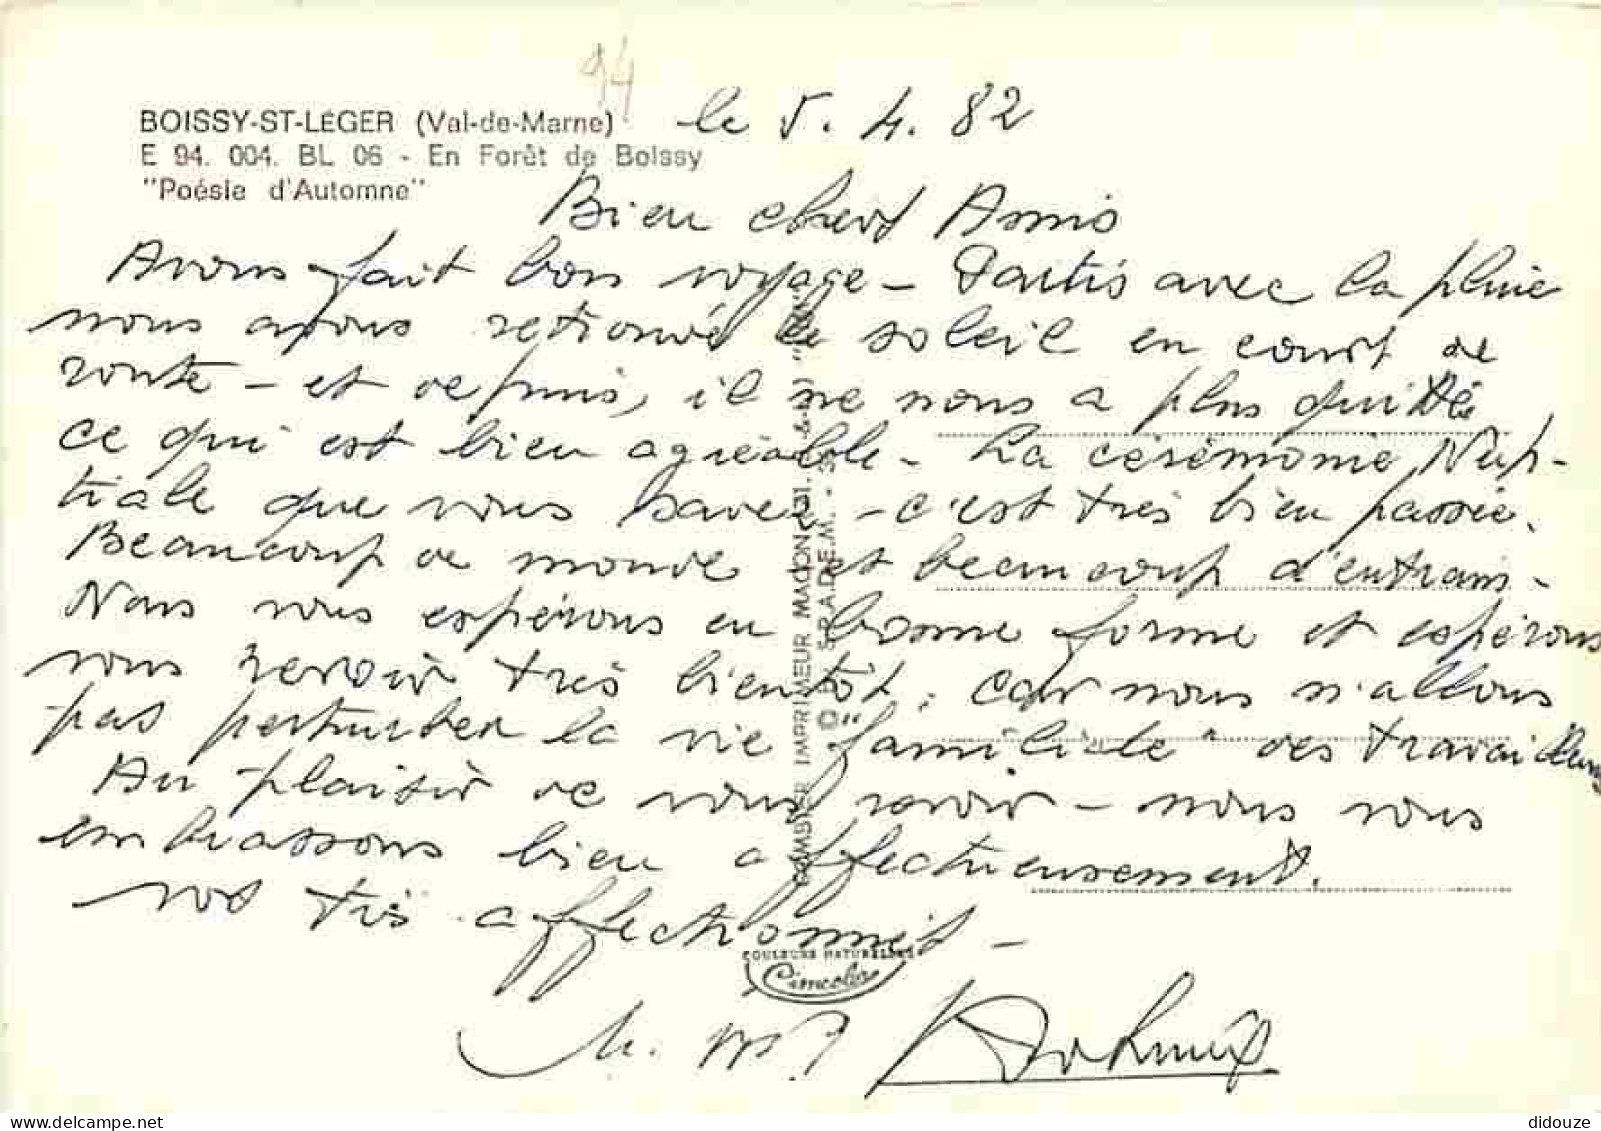 94
BOISSY-ST-LÉGER (Val-de-Marne)
le 5.4.82
E 94. 004. BL 06 - En Forêt de Boissy
"Poésie d'Automne"
Bien chers Amis
Avons fait bon voyage - Partis avec la pluie
nous avons retrouvé le soleil en court de
route - et depuis, il ne nous a plus quittés
ce qui est bien agréable - La cérémonie Nup-
tiale que vous savez - c'est très bien passée.
Beaucoup de monde et beaucoup d'entrain -
Nous vous espérons en bonne forme et espérons
vous revoir très bientôt, car nous n'allons
pas perturber la vie "familiale" des travailleurs
Au plaisir de vous revoir - nous vous
embrassons bien affectueusement.
vos très affectionnés -
M. Mme
COMBIER IMPRIMEUR MACON
© S.P.A.D.E.M.
COULEURS NATURELLES
Cimcolor
didouze